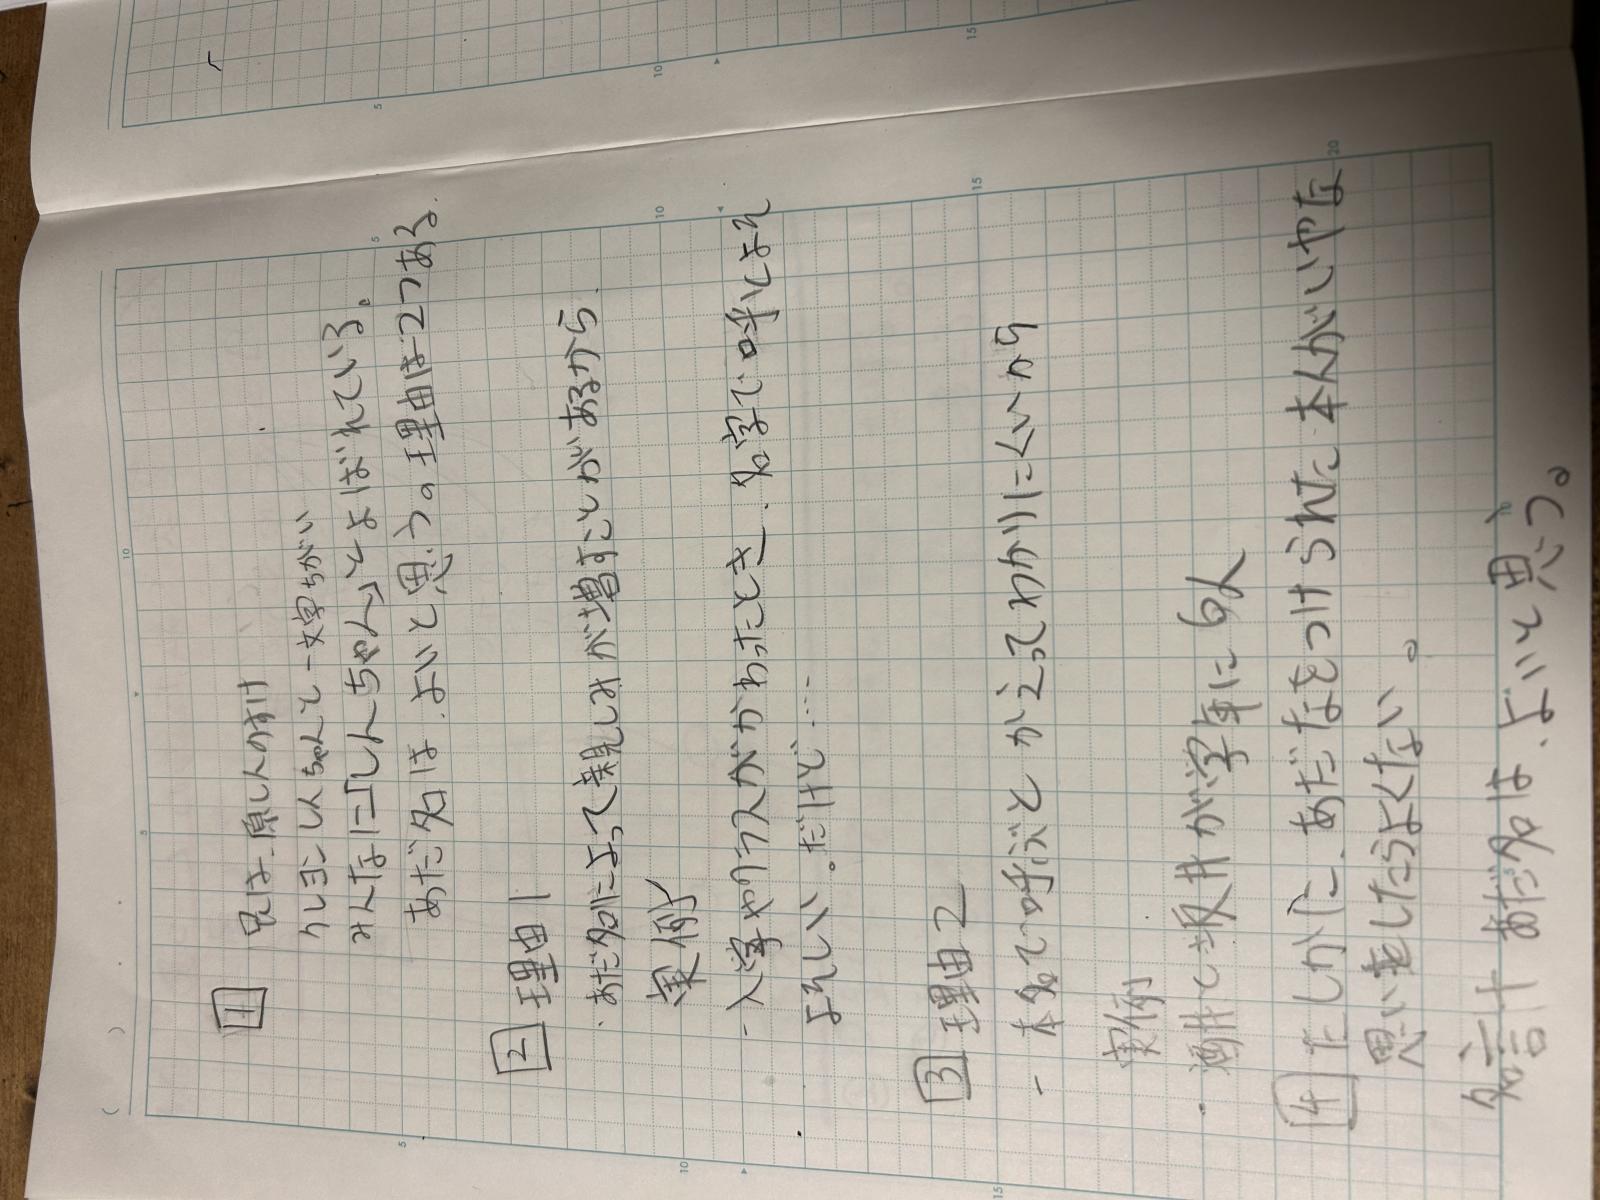 1
兄は、原しんのすけ
クレヨンしんちゃんと一文字ちがい
みんなに「しんちゃん」とよばれている。
あだ名は、よいと思う。理由は2つある。
2 理由1
・あだ名によって親しみが増すことがあるから。
実例
・入学やクラスがかわったとき、名字で呼とよれ
よれしい。だけど……
3 理由2
・本名で呼ぶとかえってわかりにくいから
実例
・酒井と坂井が学年に6人
4 たしかに、あだなをつけられた本人がいやな
思いをしたらよくない。
あだ名は、よいと思う。
5
10
15
20
5
10
15
5
10
15